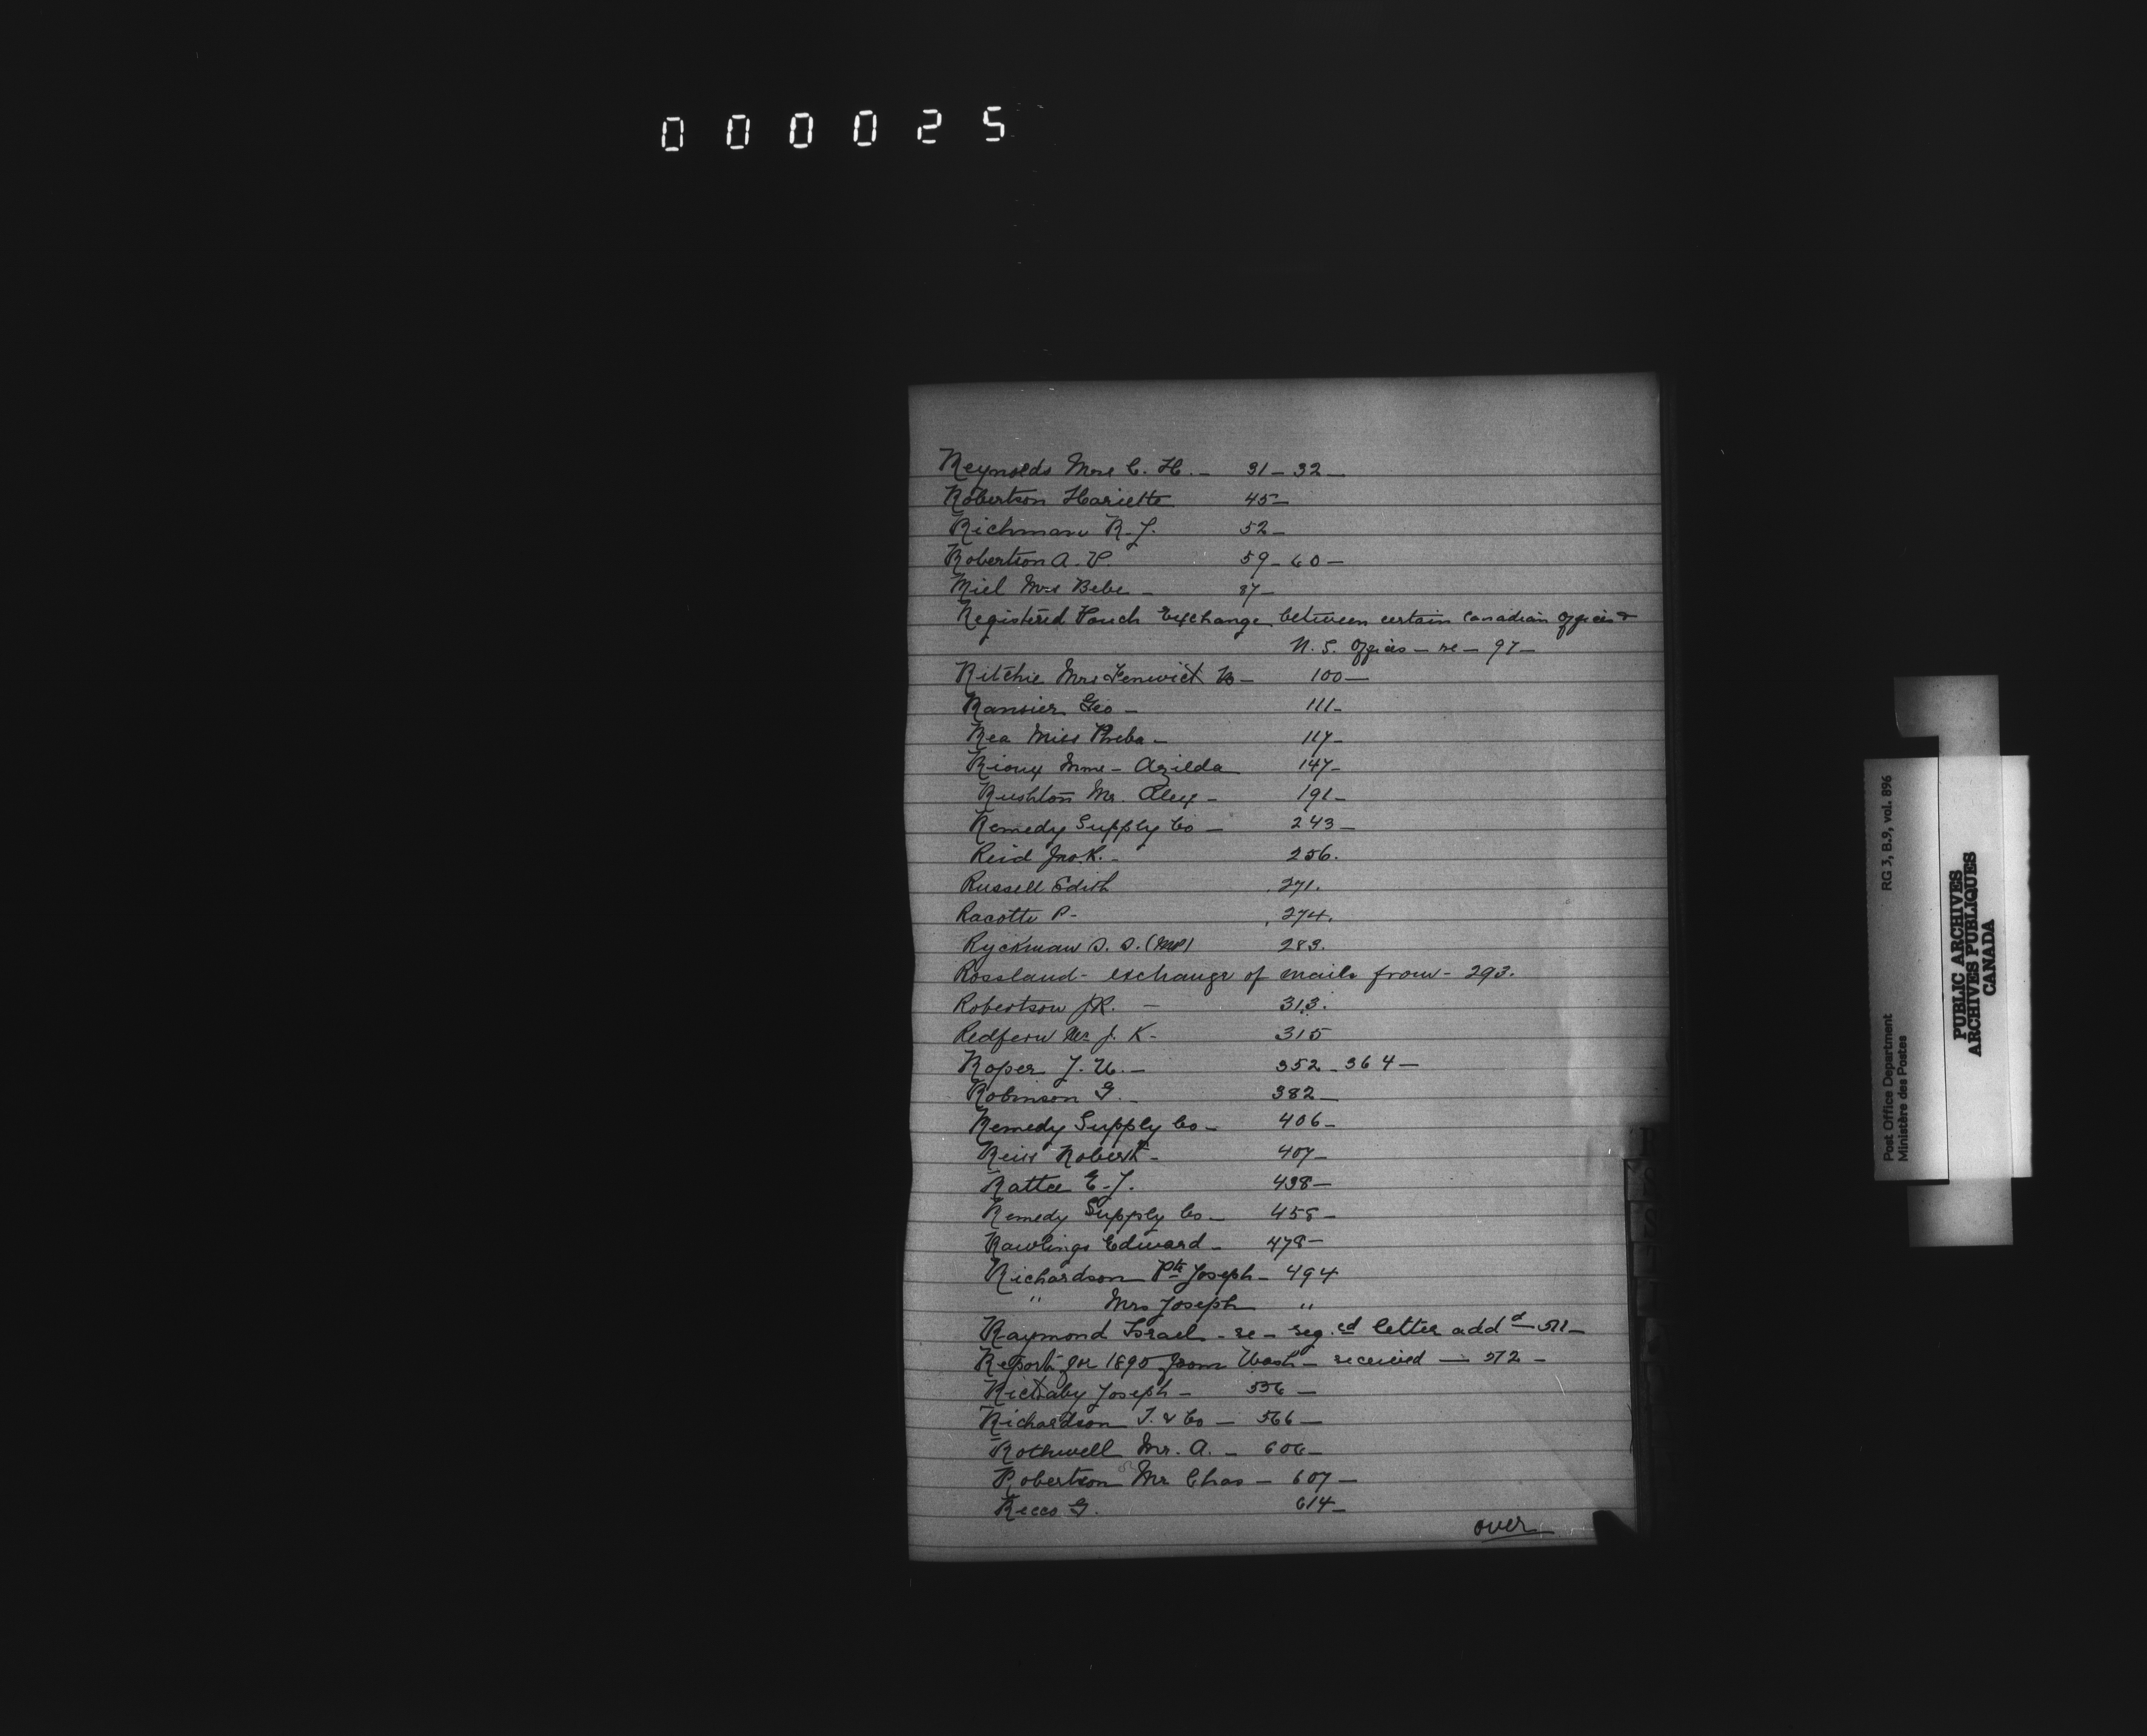 000025
Reynolds Mrs C. H. - 31 - 32 -
Robertson Hariette 45 -
Richman R. J. 52 -
Robertson A. P. 59 - 60 -
Riel Mrs Bebe - 87 -
Registered Pouch Exchange between certain Canadian Offices &
U. S. Offices - re - 97 -
Ritchie Mrs Fenwick - 100 -
Ransier Geo - 111 -
Rea Miss Pheba - 117 -
Rioux Mme - Azilda 147 -
Rushton Mr. Alex - 191 -
Remedy Supply Co - 243 -
Reid Jno. K. - 256.
Russell Edith 271.
Racotte P - 274.
Ryckman S. S. (MP) 283.
Rossland - exchange of mails from - 293.
Robertson J R. - 313.
Redfern Mr J. K - 315
Roper J. U. - 352 - 364 -
Robinson G. - 382 -
Remedy Supply Co - 406 -
Reiss Robert - 407 -
Rattee E. J. 438 -
Remedy Supply Co - 458 -
Rawlings Edward - 478 -
Richardson Pte Joseph - 494
" Mrs Joseph "
Raymond Israel - re - reg.ed letter addd - 511 -
Report for 1895 from Wash - received - 512 -
Rickaby Joseph - 536 -
Richardson J. & Co - 566 -
Rothwell Mr. A. - 606 -
Robertson Mr Chas - 607 -
Recco G. 614 -
over
RG 3, B.9, vol. 896
Post Office Department
Ministère des Postes
PUBLIC ARCHIVES
ARCHIVES PUBLIQUES
CANADA